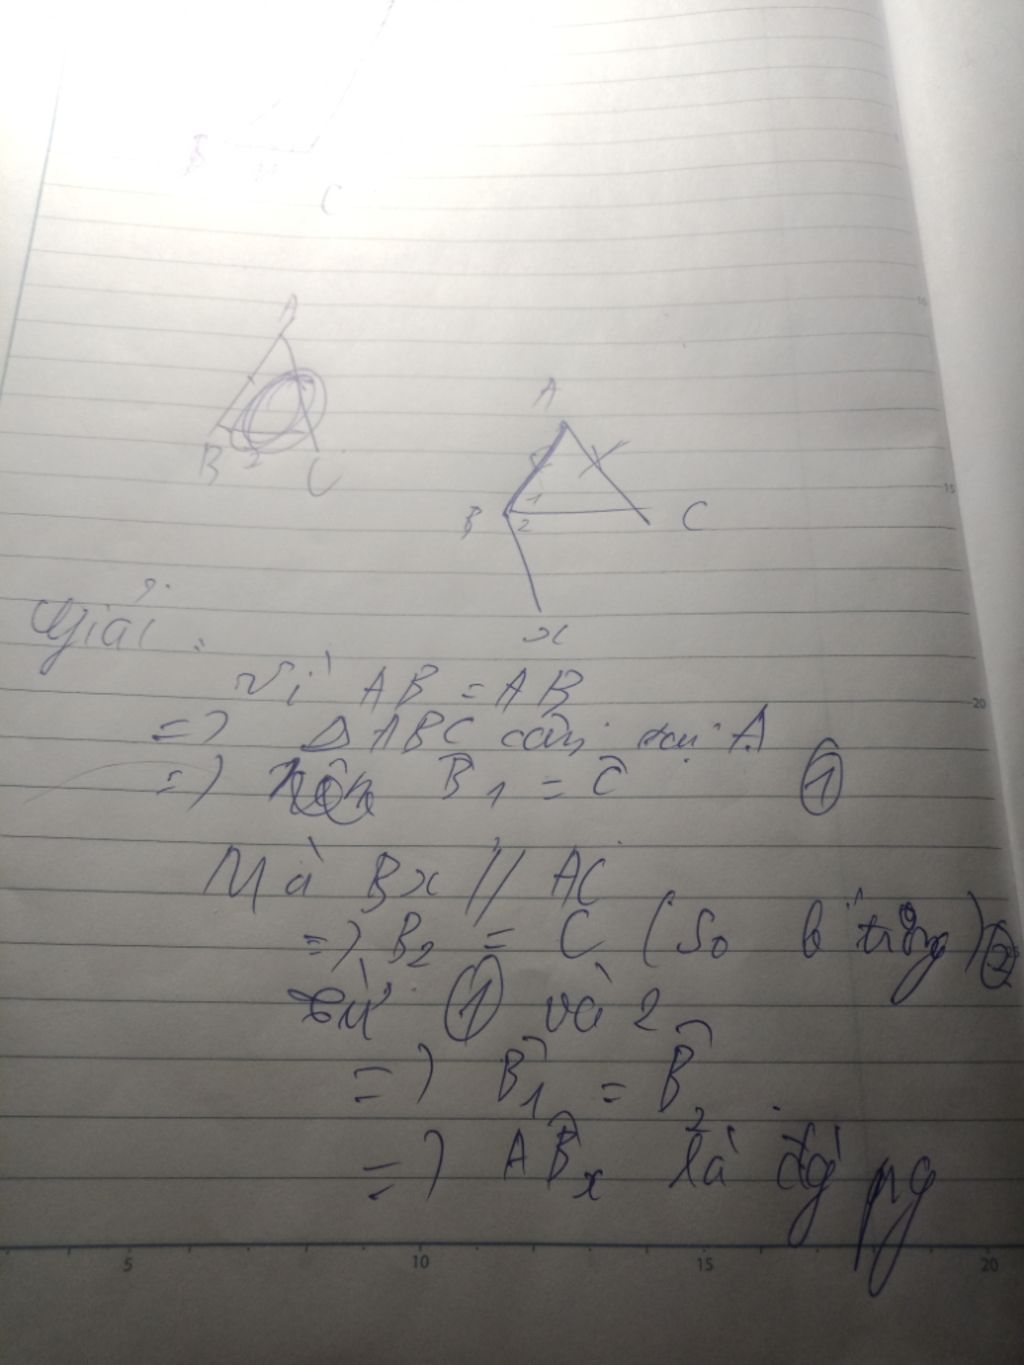 B
C
A
B 2 C
A
1
B 2 C
x
Giải :
Vì AB = AB
=> Δ ABC cân tại A
=> B̂1 = Ĉ ①
Mà Bx // AC
=> B2 = C (So le trong) ②
từ ① và 2
=> B̂1 = B̂2
=> AB̂x là đg pg
5 10 15 20
15
20